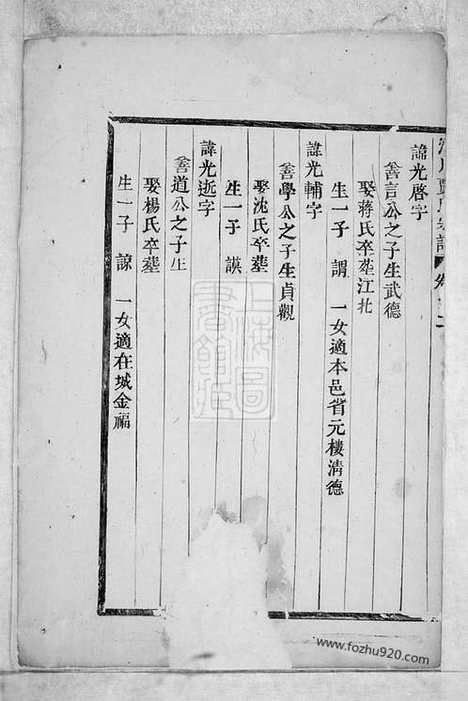 諱光啓字
善言公之子生武德
娶蔣氏卒塟江北
生一子 謂 一女適本邑省元樓淸德
諱光輔字
善學公之子生貞觀
娶沈氏卒塟
生一子 謨
諱光逝字
善道公之子生
娶楊氏卒塟
生一子 諒 一女適在城金福
上海圖書館藏
www.fozhu920.com